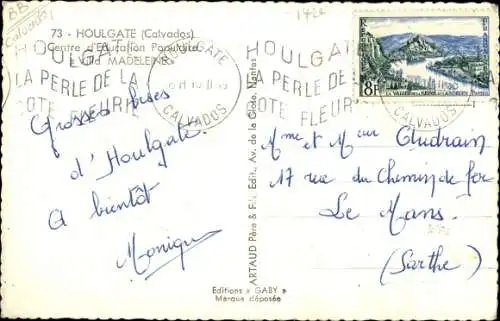 BB
Calvados
1422
73 - HOULGATE (Calvados)
Centre d'Education Populaire
Villa MADELEINE
HOULGATE
LA PERLE DE LA
COTE FLEURIE
HOULGATE
CALVADOS
HOULGATE
LA PERLE DE
COTE FLEUR
CALVADOS
8F
Grosses bises
d'Houlgate.
A bientôt
Monique
ARTAUD Père & Fils, Edit., Av. de la Gare, Nantes
Mme et Mieur Audrain
17 rue du Chemin de fer
Le Mans.
(Sarthe)
Editions « GABY »
Marque déposée